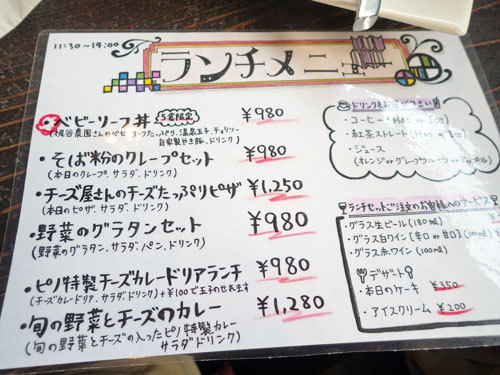 11:30～14:00
ランチメニュー
・ベビーリーフ丼 5食限定 ¥980
(梶谷農園さんのベビーリーフたっぷり、温泉玉子、チョリソー
自家製やき豚、ドリンク)
・そば粉のクレープセット ¥980
(本日のクレープ、サラダ、ドリンク)
・チーズ屋さんのチーズたっぷりピザ ¥1,250
(本日のピザ、サラダ、ドリンク)
・野菜のグラタンセット ¥980
(野菜のグラタン、サラダ、パン、ドリンク)
・ピノ特製チーズカレードリアランチ ¥980
(チーズカレードリア、サラダ、ドリンク)+¥100で玉子のせれます
・旬の野菜とチーズのカレー ¥1,280
(旬の野菜とチーズの入ったピノ特製カレー
サラダ、ドリンク)
ドリンクをお選び下さい
・コーヒー(Hot or Ice)
・紅茶ストレート(Hot or Ice)
・ジュース
(オレンジ or グレープフルーツ or アップル)
ランチセットご注文のお客様へのサービス
・グラス生ビール(180ml)
・グラス白ワイン[辛口 or 甘口](100ml)
・グラス赤ワイン(100ml)
デザート
・本日のケーキ ¥350
・アイスクリーム ¥200